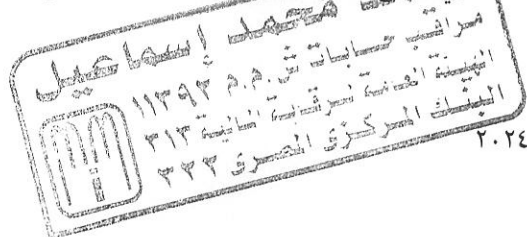 محمد إسماعيل
مراقب حسابات س.م.م ١١٣٩٢
الهيئة العامة للرقابة المالية ٣١٣
البنك المركزى المصرى ٣٢٢
٢٠٢٤